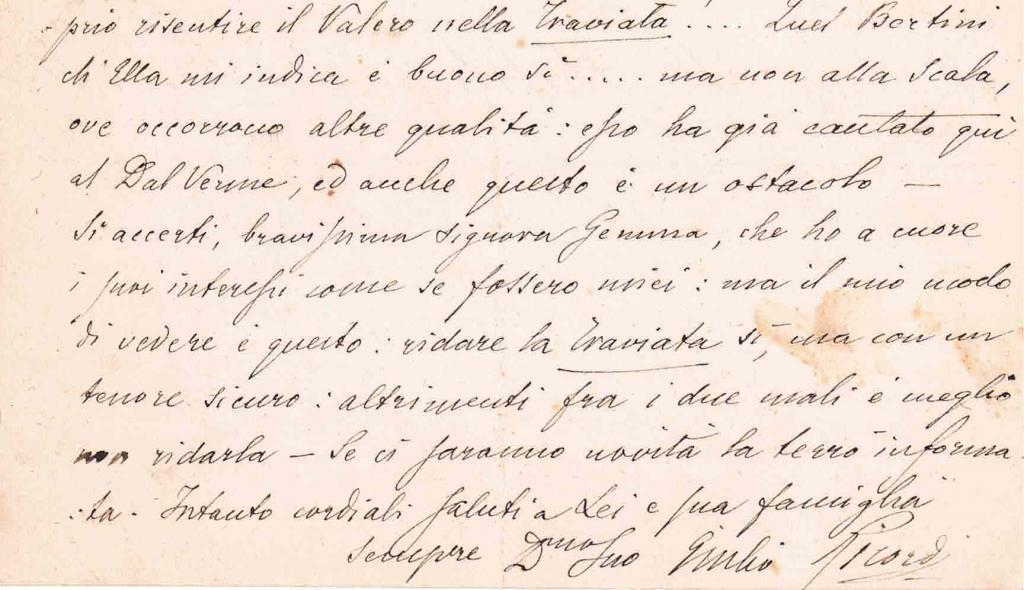 prio risentire il Valero nella Traviata!... Quel Bertini
ch'Ella mi indica è buono sì..... ma non alla Scala,
ove occorrono altre qualità: esso ha già cantato qui
al Dal Verme, ed anche questo è un ostacolo —
Si accerti, bravissima Signora Gemma, che ho a cuore
i suoi interessi come se fossero miei: ma il mio modo
di vedere è questo: ridare la Traviata sì, ma con un
tenore sicuro: altrimenti fra i due mali è meglio
non ridarla — Se ci saranno novità la terrò informa-
-ta. Intanto cordiali saluti a Lei e sua famiglia
sempre Dmo Suo Giulio Ricordi